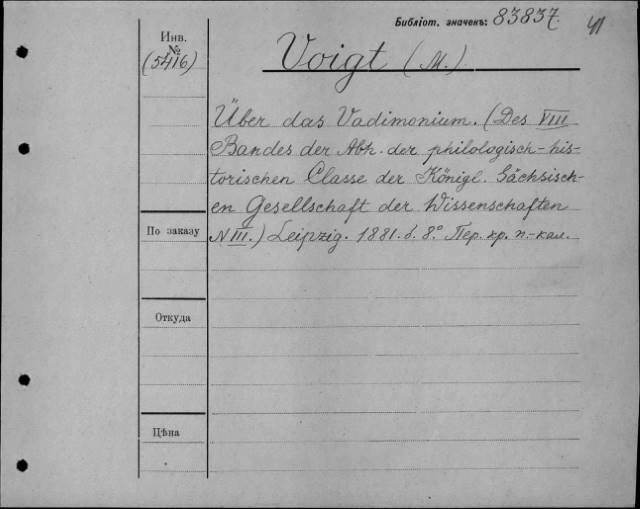 Библіот. значекъ: 83837.
41
Инв.
№
(5416)
Voigt (M.).
Über das Vadimonium. (Des VIII
Bandes der Abh. der philologisch-his-
torischen Classe der Königl. Sächsisch-
en Gesellschaft der Wissenschaften
N III.) Leipzig. 1881. b. 8.° Пер. кр. п.-кал.
По заказу
Откуда
Цѣна